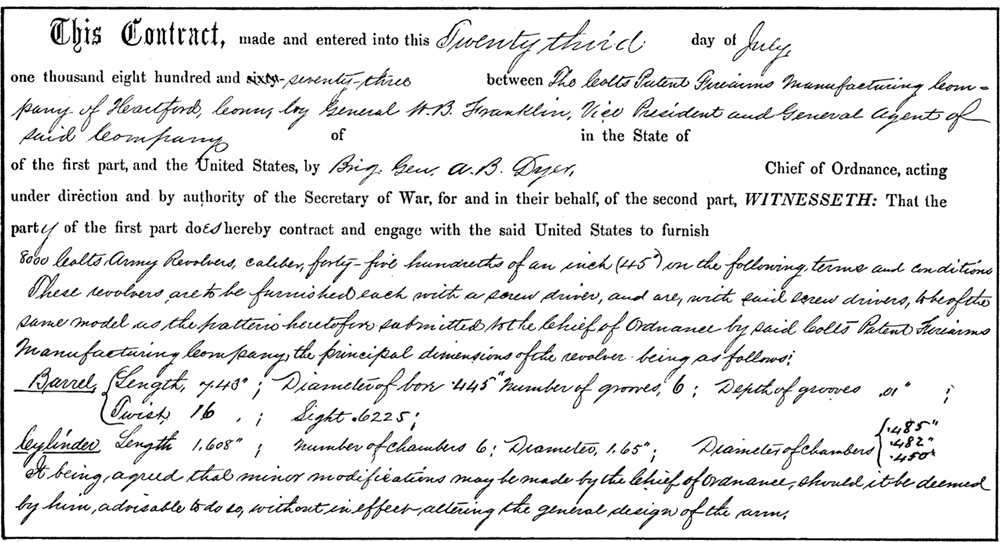 This Contract, made and entered into this Twenty third day of July,
one thousand eight hundred and sixty-seventy-three between The Colts Patent Firearms Manufacturing Com=
pany of Heartford, Conn, by General W. B. Franklin, Vice President and General Agent of
said Company of in the State of
of the first part, and the United States, by Brig. Gen. A. B. Dyer, Chief of Ordnance, acting
under direction and by authority of the Secretary of War, for and in their behalf, of the second part, WITNESSETH: That the
party of the first part does hereby contract and engage with the said United States to furnish
8000 Colts Army Revolvers, caliber, forty-five hundreths of an inch (45") on the following, terms and conditions
These revolvers are to be furnished each with a screw driver, and are, with said screw drivers, to be of the
same model as the pattern heretofore submitted to the Chief of Ordnance by said Colts Patent Firearms
Manufacturing Company, the principal dimensions of the revolver being as follows:
Barrel, Length, 7.43"; Diameter of bore .445" Number of grooves, 6; Depth of grooves .01" ;
Twist, 16 , ; Sight .6225;
Cylinder Length 1.608"; Number of chambers 6; Diameter, 1.65"; Diameter of chambers .485"
.482"
.450"
It being, agreed that minor modifications may be made by the Chief of Ordnance, should it be deemed
by him, advisable to do so, without in effect, altering the general design of the arm.